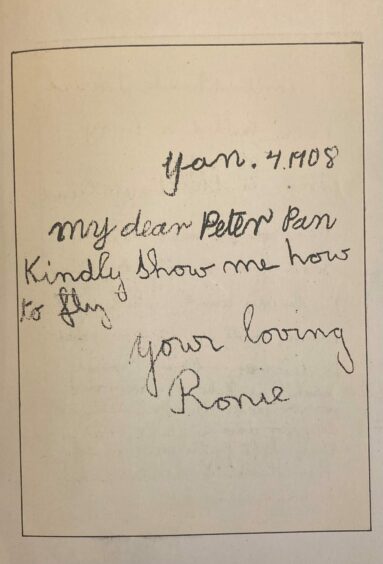 Jan. 4. 1908
my dear Peter Pan
Kindly show me how
to fly
your loving
Ronie